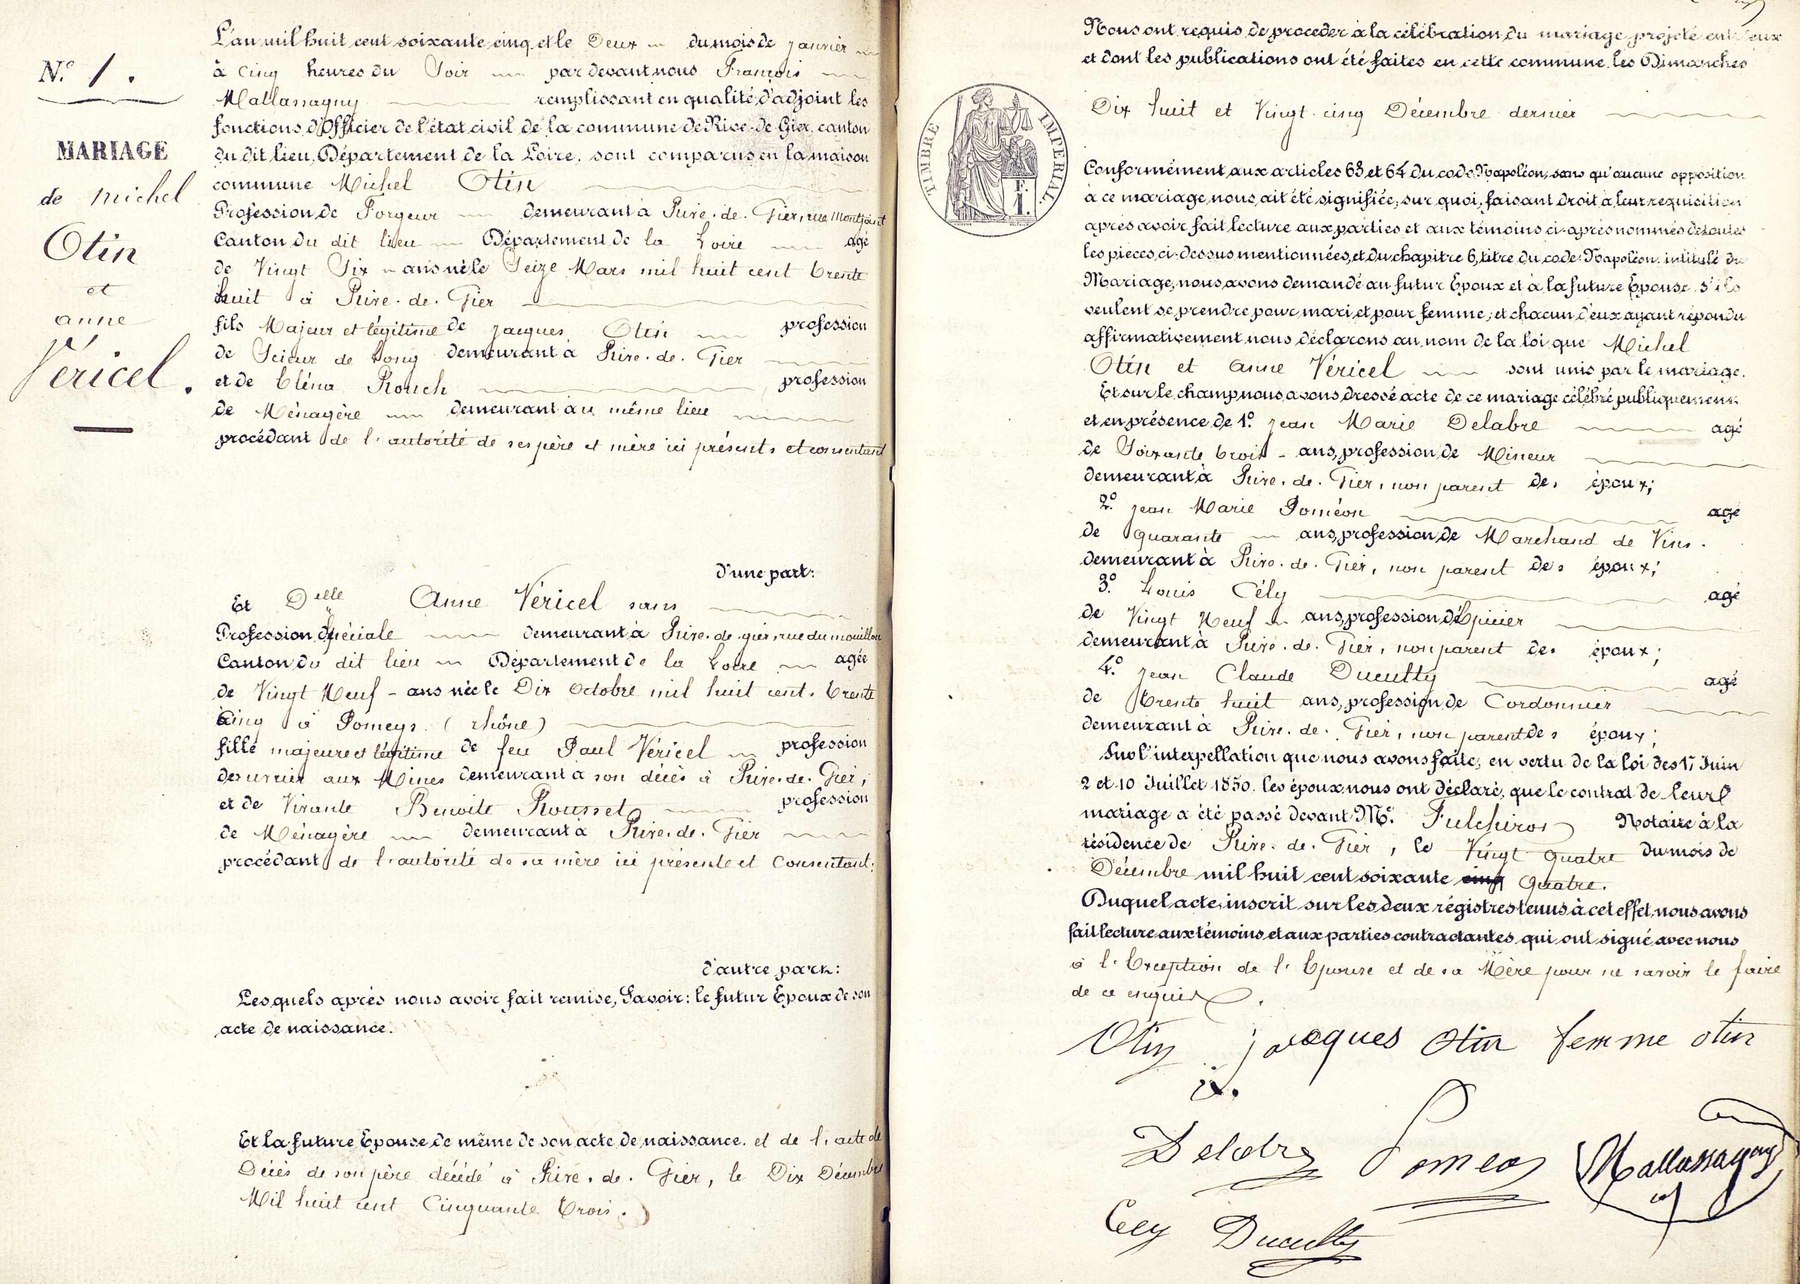 N.º 1.
MARIAGE
de michel
Otin
et
anne
Véricel.
L'an mil huit cent soixante cinq et le Deux du mois de janvier
à Cinq heures du Soir par devant nous François
Mallassagny remplissant en qualité d'adjoint les
fonctions d'Officier de l'état civil de la commune de Rive-de-Gier, canton
du dit lieu, Département de la Loire, sont comparus en la maison
commune Michel Otin
Profession de Forgeur demeurant à Rive-de-Gier, rue Montjoint
Canton du dit lieu Département de la Loire agé
de Vingt Six ans né le Seize Mars mil huit cent trente
huit à Rive-de-Gier
fils Majeur et légitime de jacques Otin profession
de Scieur de Long demeurant à Rive-de-Gier
et de Cléna Rouch profession
de Ménagère demeurant au même lieu
procédant de l'autorité de ses père et mère ici présents et consentant
d'une part:
Et Delle Anne Véricel sans
Profession spéciale demeurant à Rive-de-gier, rue du mouillon
Canton du dit lieu Département de la Loire agée
de Vingt Neuf ans née le Dix Octobre mil huit cent trente
cinq à Pomeys (rhône)
fille majeure et légitime de feu Paul Véricel profession
d'ouvrier aux Mines demeurant à son décès à Rive-de-Gier;
et de Vivante Benoite Rousset profession
de Ménagère demeurant à Rive-de-Gier
procédant de l'autorité de sa mère ici présente et Consentant;
d'autre part:
Lesquels après nous avoir fait remise, Savoir: le futur Epoux de son
acte de naissance.
Et la future Epouse de même de son acte de naissance, et de l'acte de
Décès de son père décédé à Rive-de-Gier, le Dix Décembre
Mil huit cent Cinquante trois.
Nous ont requis de procéder à la célébration du mariage projeté entr'eux
et dont les publications ont été faites en cette commune, les Dimanches
Dix huit et Vingt-cinq Décembre dernier
TIMBRE IMPÉRIAL
F. 1.
Conformément aux articles 63 et 64 du code Napoléon, sans qu'aucune opposition
à ce mariage nous ait été signifiée, sur quoi, faisant droit à leur requisition
après avoir fait lecture aux parties et aux témoins ci-après nommés de toutes
les pièces ci-dessus mentionnées, et du chapitre 6, titre du code Napoléon, intitulé du
Mariage, nous avons demandé au futur Epoux et à la future Epouse s'ils
veulent se prendre pour mari et pour femme; et chacun d'eux ayant répondu
affirmativement, nous déclarons au nom de la loi que Michel
Otin et anne Véricel sont unis par le mariage.
Et sur le champ, nous avons dressé acte de ce mariage célébré publiquement
et en présence de 1.º jean Marie Delabre agé
de Soixante trois ans, profession de Mineur
demeurant à Rive-de-Gier, non parent des époux;
2.º jean Marie Poméon agé
de quarante ans, profession de Marchand de Vins.
demeurant à Rive-de-Gier, non parent des époux;
3.º Louis Cély agé
de Vingt Neuf ans, profession d'Epicier
demeurant à Rive-de-Gier, non parent des époux;
4.º jean Claude Ducultty agé
de trente huit ans, profession de Cordonnier
demeurant à Rive-de-Gier, non parent des époux;
Sur l'interpellation que nous avons faite, en vertu de la loi des 17 Juin
2 et 10 Juillet 1850, les époux nous ont déclaré, que le contrat de leur
mariage a été passé devant M.e Fulchiron Notaire à la
résidence de Rive-de-Gier, le Vingt quatre du mois de
Décembre mil huit cent soixante cinq quatre.
Duquel acte, inscrit sur les deux régistres tenus à cet effet, nous avons
fait lecture aux témoins et aux parties contractantes, qui ont signé avec nous
à l'Exception de l'Epouse et de sa Mère pour ne savoir le faire
de ce enquis.
Otin jacques otin femme otin
Delabre Pomeon Mallassagny
Cely Ducultty